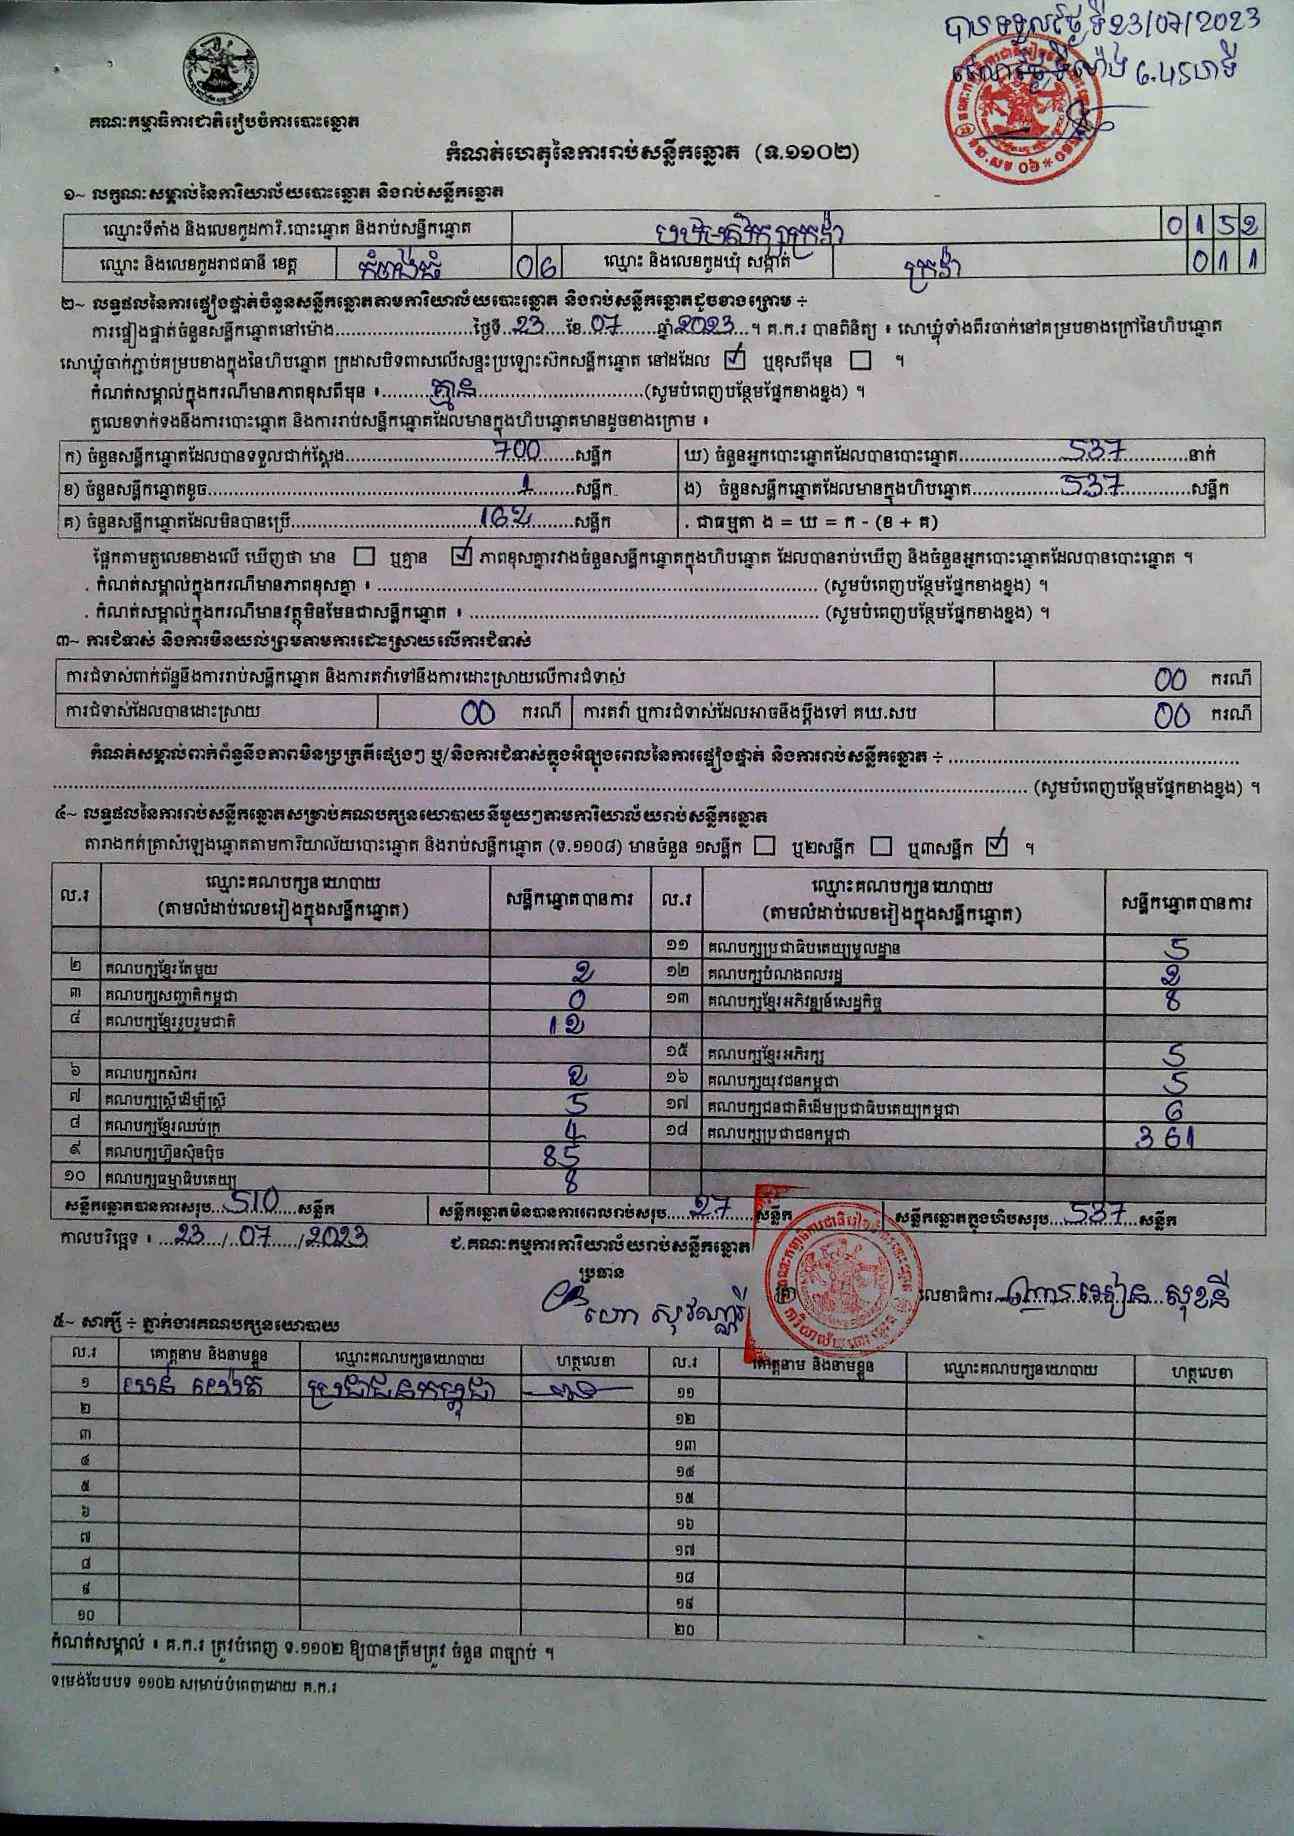 បានទទួលថ្ងៃទី23/07/2023
វេលាម៉ោង 6.45នាទី
គណៈកម្មាធិការជាតិរៀបចំការបោះឆ្នោត
កំណត់ហេតុនៃការរាប់សន្លឹកឆ្នោត (ទ.១១០២)
១~ លក្ខណៈសម្គាល់នៃការិយាល័យបោះឆ្នោត និងរាប់សន្លឹកឆ្នោត
ឈ្មោះទីតាំង និងលេខកូដការិ.បោះឆ្នោត និងរាប់សន្លឹកឆ្នោត បឋមសិក្សាក្រវ៉ា 0152
ឈ្មោះ និងលេខកូដរាជធានី ខេត្ត កំពង់ធំ 06 ឈ្មោះ និងលេខកូដឃុំ សង្កាត់ ក្រវ៉ា 011
២~ លទ្ធផលនៃការផ្ទៀងផ្ទាត់ចំនួនសន្លឹកឆ្នោតតាមការិយាល័យបោះឆ្នោត និងរាប់សន្លឹកឆ្នោតដូចខាងក្រោម ÷
ការផ្ទៀងផ្ទាត់ចំនួនសន្លឹកឆ្នោតនៅម៉ោង.....................ថ្ងៃទី..23....ខែ.07......ឆ្នាំ2023...។ គ.ក.រ បានពិនិត្យ ៖ សោឃ្លុំទាំងពីរចាក់នៅគម្របខាងក្រៅនៃហិបឆ្នោត
សោឃ្លុំចាក់ភ្ជាប់គម្របខាងក្នុងនៃហិបឆ្នោត ក្រដាសបិទពាសលើសន្ទះប្រឡោះស៊កសន្លឹកឆ្នោត នៅដដែល ☑ ឬខុសពីមុន ☐ ។
កំណត់សម្គាល់ក្នុងករណីមានភាពខុសពីមុន ៖.........គ្មាន..............................(សូមបំពេញបន្ថែមផ្នែកខាងខ្នង) ។
តួលេខទាក់ទងនឹងការបោះឆ្នោត និងការរាប់សន្លឹកឆ្នោតដែលមានក្នុងហិបឆ្នោតមានដូចខាងក្រោម ៖
ក) ចំនួនសន្លឹកឆ្នោតដែលបានទទួលជាក់ស្តែង..........700..........សន្លឹក ឃ) ចំនួនអ្នកបោះឆ្នោតដែលបានបោះឆ្នោត..........537..........នាក់
ខ) ចំនួនសន្លឹកឆ្នោតខូច..........1..........សន្លឹក ង) ចំនួនសន្លឹកឆ្នោតដែលមានក្នុងហិបឆ្នោត..........537..........សន្លឹក
គ) ចំនួនសន្លឹកឆ្នោតដែលមិនបានប្រើ..........162..........សន្លឹក . ជាធម្មតា ង = ឃ = ក - (ខ + គ)
ផ្អែកតាមតួលេខខាងលើ ឃើញថា មាន ☐ ឬគ្មាន ☑ ភាពខុសគ្នារវាងចំនួនសន្លឹកឆ្នោតក្នុងហិបឆ្នោត ដែលបានរាប់ឃើញ និងចំនួនអ្នកបោះឆ្នោតដែលបានបោះឆ្នោត ។
. កំណត់សម្គាល់ក្នុងករណីមានភាពខុសគ្នា ៖ .......................... (សូមបំពេញបន្ថែមផ្នែកខាងខ្នង) ។
. កំណត់សម្គាល់ក្នុងករណីមានវត្ថុមិនមែនជាសន្លឹកឆ្នោត ៖ .......................... (សូមបំពេញបន្ថែមផ្នែកខាងខ្នង) ។
៣~ ការជំទាស់ និងការមិនយល់ព្រមតាមការដោះស្រាយលើការជំទាស់
ការជំទាស់ពាក់ព័ន្ធនឹងការរាប់សន្លឹកឆ្នោត និងការតវ៉ាទៅនឹងការដោះស្រាយលើការជំទាស់ 00 ករណី
ការជំទាស់ដែលបានដោះស្រាយ 00 ករណី ការតវ៉ា ឬការជំទាស់ដែលអាចនឹងប្តឹងទៅ គឃ.សប 00 ករណី
កំណត់សម្គាល់ពាក់ព័ន្ធនឹងភាពមិនប្រក្រតីផ្សេងៗ ឬ/និងការជំទាស់ក្នុងអំឡុងពេលនៃការផ្ទៀងផ្ទាត់ និងការរាប់សន្លឹកឆ្នោត ÷ ..........................
.......................... (សូមបំពេញបន្ថែមផ្នែកខាងខ្នង) ។
៤~ លទ្ធផលនៃការរាប់សន្លឹកឆ្នោតសម្រាប់គណបក្សនយោបាយនីមួយៗតាមការិយាល័យរាប់សន្លឹកឆ្នោត
តារាងកត់ត្រាសំឡេងឆ្នោតតាមការិយាល័យបោះឆ្នោត និងរាប់សន្លឹកឆ្នោត (ទ.១១០៨) មានចំនួន ១សន្លឹក ☐ ឬ២សន្លឹក ☐ ឬ៣សន្លឹក ☑ ។
ល.រ ឈ្មោះគណបក្សនយោបាយ (តាមលំដាប់លេខរៀងក្នុងសន្លឹកឆ្នោត) សន្លឹកឆ្នោតបានការ ល.រ ឈ្មោះគណបក្សនយោបាយ (តាមលំដាប់លេខរៀងក្នុងសន្លឹកឆ្នោត) សន្លឹកឆ្នោតបានការ
១១ គណបក្សប្រជាធិបតេយ្យមូលដ្ឋាន 5
២ គណបក្សខ្មែរតែមួយ 2 ១២ គណបក្សបំណងពលរដ្ឋ 2
៣ គណបក្សសញ្ជាតិកម្ពុជា 0 ១៣ គណបក្សខ្មែរអភិវឌ្ឍន៍សេដ្ឋកិច្ច 8
៤ គណបក្សខ្មែររួបរួមជាតិ 12
១៥ គណបក្សខ្មែរអភិរក្ស 5
៦ គណបក្សកសិករ 2 ១៦ គណបក្សយុវជនកម្ពុជា 5
៧ គណបក្សស្ត្រីដើម្បីស្ត្រី 5 ១៧ គណបក្សជនជាតិដើមប្រជាធិបតេយ្យកម្ពុជា 6
៨ គណបក្សខ្មែរឈប់ក្រ 4 ១៨ គណបក្សប្រជាជនកម្ពុជា 361
៩ គណបក្សហ៊្វុនស៊ិនប៉ិច 85
១០ គណបក្សធម្មាធិបតេយ្យ 8
សន្លឹកឆ្នោតបានការសរុប...510....សន្លឹក សន្លឹកឆ្នោតមិនបានការពេលរាប់សរុប......27......សន្លឹក សន្លឹកឆ្នោតក្នុងហិបសរុប...537....សន្លឹក
កាលបរិច្ឆេទ ៖ ...23..../...07...../2023 ជ.គណៈកម្មការការិយាល័យរាប់សន្លឹកឆ្នោត
ប្រធាន
ហោ សុវណ្ណារី លេខាធិការ សុខនី
៥~ សាក្សី ÷ ភ្នាក់ងារគណបក្សនយោបាយ
ល.រ គោត្តនាម និងនាមខ្លួន ឈ្មោះគណបក្សនយោបាយ ហត្ថលេខា ល.រ គោត្តនាម និងនាមខ្លួន ឈ្មោះគណបក្សនយោបាយ ហត្ថលេខា
១ ប្រជាជនកម្ពុជា ១១
២ ១២
៣ ១៣
៤ ១៤
៥ ១៥
៦ ១៦
៧ ១៧
៨ ១៨
៩ ១៩
១០ ២០
កំណត់សម្គាល់ ៖ គ.ក.រ ត្រូវបំពេញ ទ.១១០២ ឱ្យបានត្រឹមត្រូវ ចំនួន ៣ច្បាប់ ។
ទម្រង់បែបបទ ១១០២ សម្រាប់បំពេញដោយ គ.ក.រ